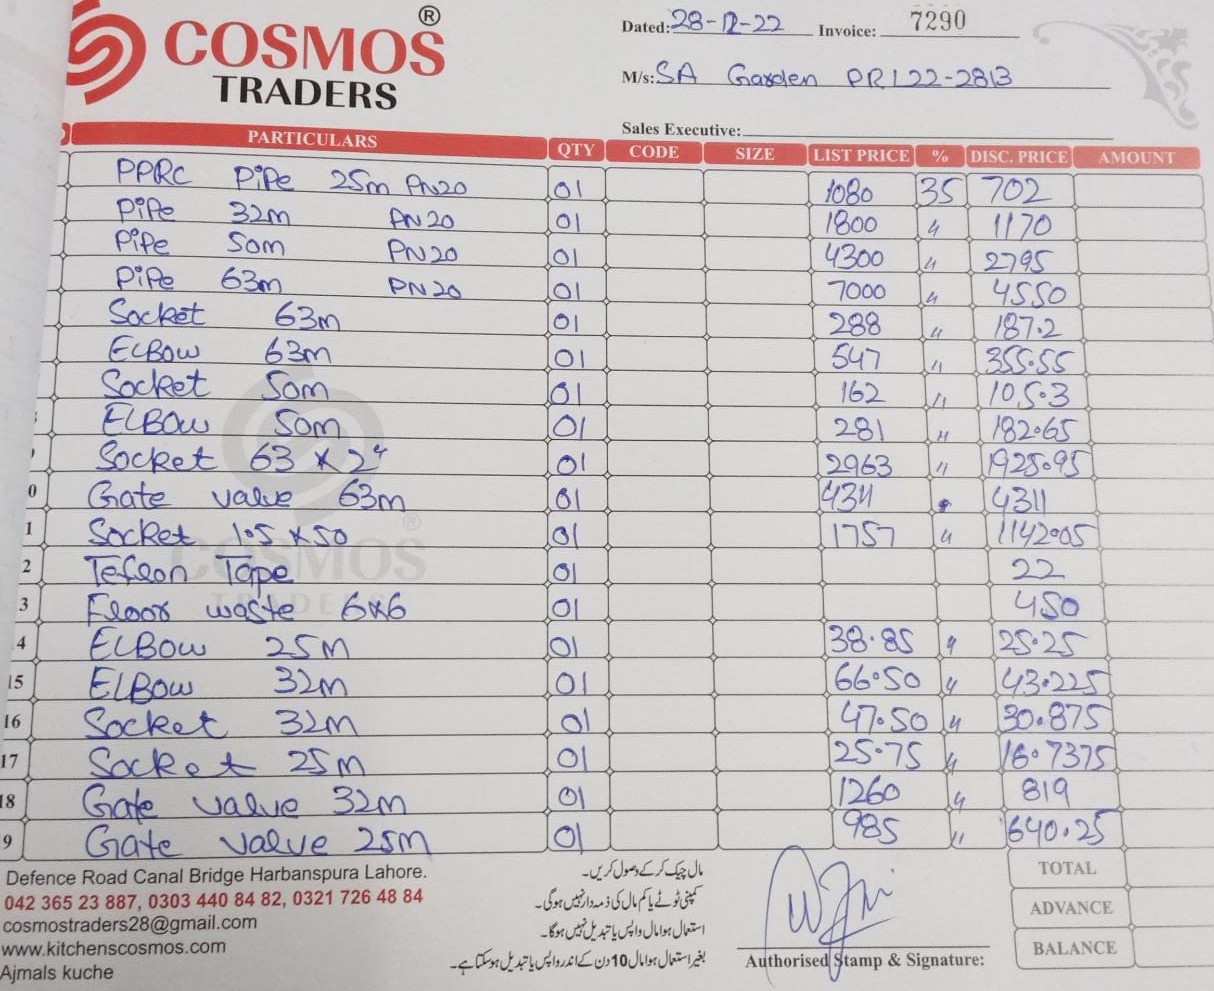 COSMOS ®
TRADERS
Dated: 28-12-22 Invoice: 7290
M/s: SA Garden PRI 22-2813
Sales Executive:
PARTICULARS QTY CODE SIZE LIST PRICE % DISC. PRICE AMOUNT
PPRC PiPe 25m PN20 01 1080 35 702
PiPe 32m PN20 01 1800 〃 1170
PiPe 50m PN20 01 4300 〃 2795
PiPe 63m PN20 01 7000 〃 4550
Socket 63m 01 288 〃 187.2
ELBow 63m 01 547 〃 355.55
Socket 50m 01 162 〃 105.3
ELBow 50m 01 281 〃 182.65
Socket 63 x 2" 01 2963 〃 1925.95
0 Gate valve 63m 01 4311 4311
1 Socket 1.5 x 50 01 1757 〃 1142.05
2 Teflon Tape 01 22
3 Floor waste 6x6 01 450
4 ELBow 25M 01 38.85 〃 25.25
15 ELBow 32M 01 66.50 〃 43.225
16 Socket 32M 01 47.50 〃 30.875
17 Socket 25M 01 25.75 〃 16.7375
18 Gate valve 32M 01 1260 〃 819
9 Gate valve 25M 01 985 〃 640.25
COSMOS ®
TRADERS
Defence Road Canal Bridge Harbanspura Lahore.
042 365 23 887, 0303 440 84 82, 0321 726 48 84
cosmostraders28@gmail.com
www.kitchenscosmos.com
Ajmals kuche
مال چیک کر کے وصول کریں۔
کمپنی ٹوٹے یا کم مال کی ذمہ دار نہیں ہوگی۔
استعمال ہوا مال واپس یا تبدیل نہیں ہوگا۔
بغیر استعمال ہوا مال 10 دن کے اندر واپس یا تبدیل ہوسکتا ہے۔
Authorised Stamp & Signature:
TOTAL
ADVANCE
BALANCE